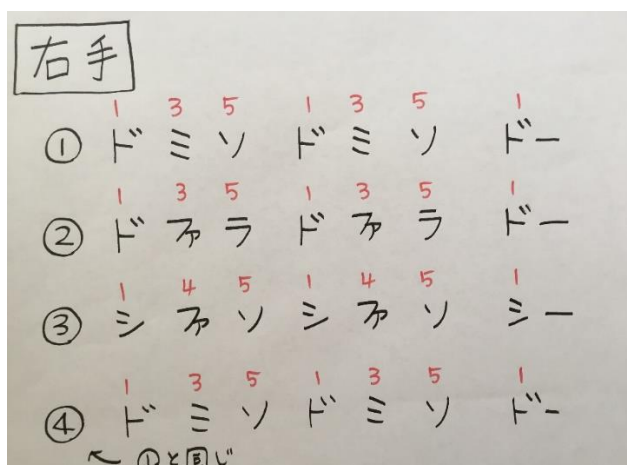 右手
1 3 5 1 3 5 1
① ド ミ ソ ド ミ ソ ドー
1 3 5 1 3 5 1
② ド ファ ラ ド ファ ラ ドー
1 4 5 1 4 5 1
③ シ ファ ソ シ ファ ソ シー
1 3 5 1 3 5 1
④ ド ミ ソ ド ミ ソ ドー
← ①と同じ